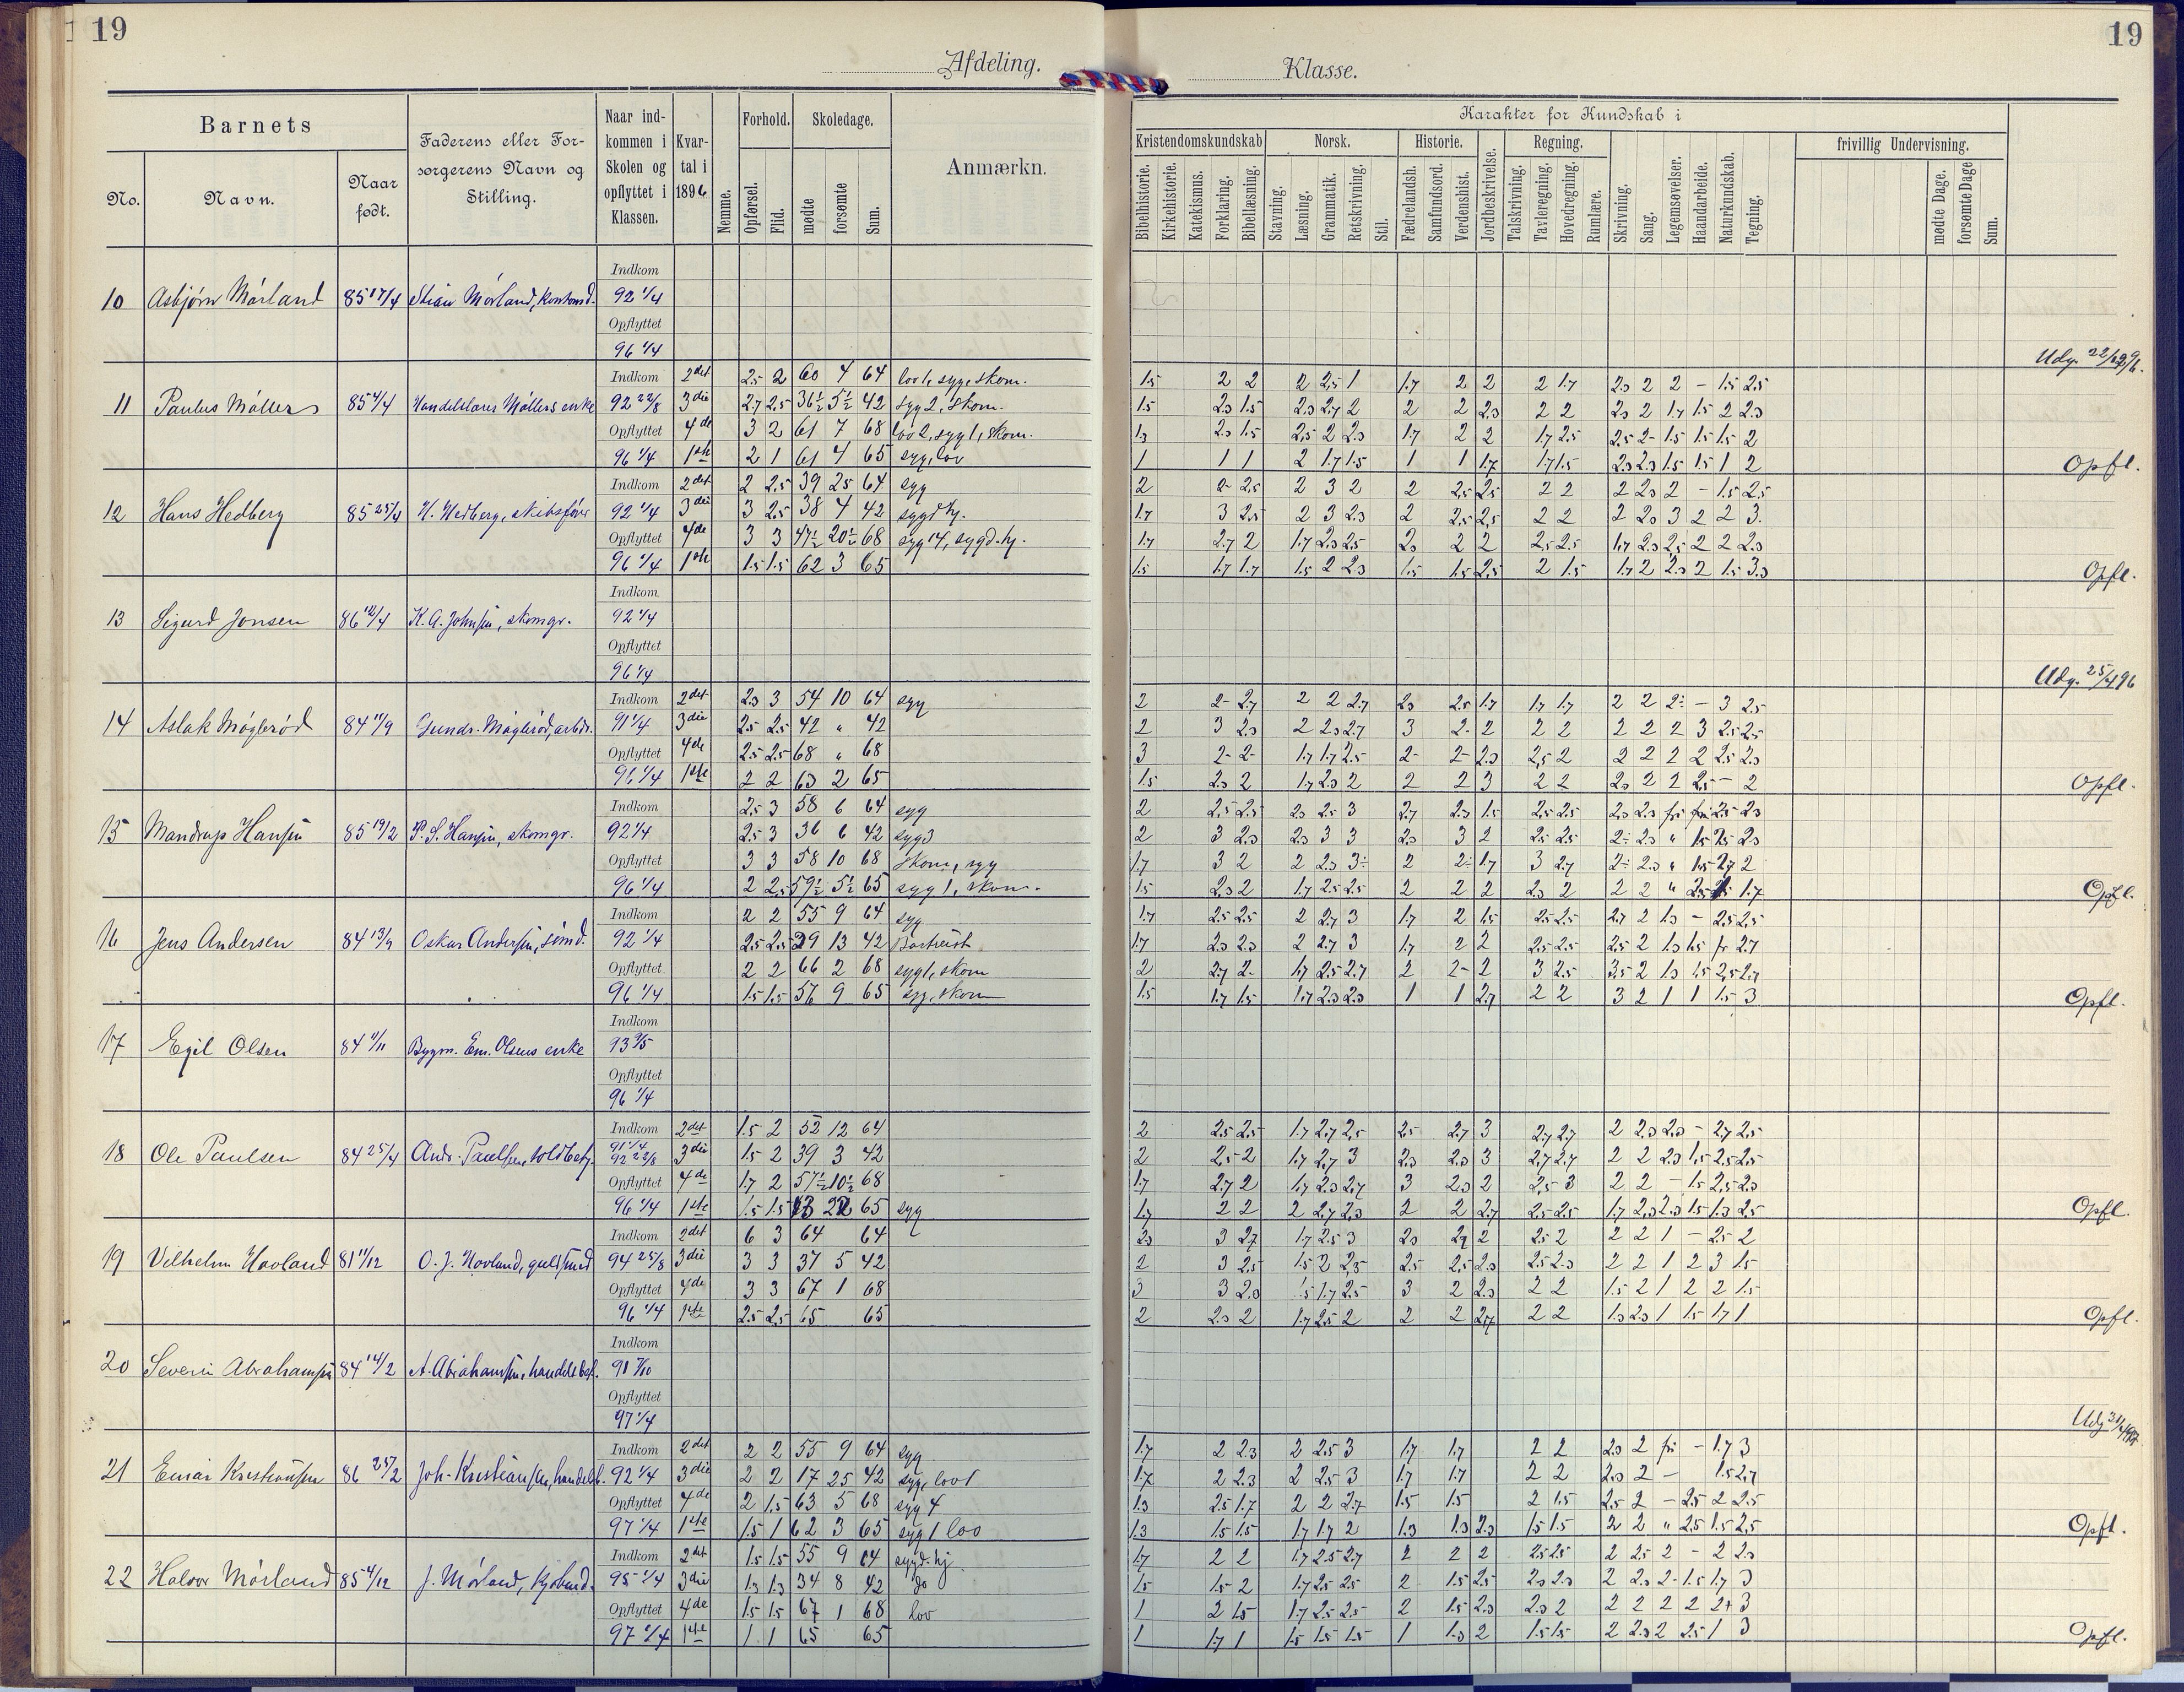 19
Afdeling.
Klasse.
19
Barnets
No.
Navn.
Naar født.
Faderens eller Forsorgerens Navn og Stilling.
Naar indkommen i Skolen og opflyttet i Klassen.
Kvartal i 1896
Nemme.
Forhold.
Opførsel.
Flid.
Skoledage.
mødte
forsømte
Sum.
Anmærkn.
Karakter for Kundskab i
Kristendomskundskab
Bibelhistorie.
Kirkehistorie.
Katekismus.
Forklaring.
Bibellæsning.
Norsk.
Stavning.
Læsning.
Grammatik.
Retskrivning.
Stil.
Historie.
Fædrelandsh.
Samfundsord.
Verdenshist.
Jordbeskrivelse.
Regning.
Talskrivning.
Tavleregning.
Hovedregning.
Rumlære.
Skrivning.
Sang.
Legemsøvelser.
Haandarbeide.
Naturkundskab.
Tegning.
frivillig Undervisning.
mødte Dage.
forsømte Dage
Sum.
Indkom
10 Asbjørn Mørland 85 17/4 Stian Mørland, 92 1/4
Opflyttet
96 1/4
Indkom 2det 2.5 2 60 4 64 1.5 2 2 2 2.5 1 1.7 2 2 2 1.7 2.3 2 2 - 1.5 2.5
11 Paulus Møllers 85 4/4 Møllers enke 92 22/8 3die 2.7 2.5 36½ 5½ 42 syg 2, skom. 1.5 2.3 1.5 2.3 2.7 2 2 2 2.3 2 2 2.3 2 1.7 1.5 2 2.3
Opflyttet 4de 3 2 61 7 68 lov 2, syg 1, skom. 1.3 2.3 1.5 2.5 2 2.3 1.7 2 2 1.7 2.5 2.5 2- 1.5 1.5 1.5 2
96 1/4 1ste 2 1 61 4 65 syg, lov 1 1 1 2 1.7 1.5 1 1 1.7 1.7 1.5 2.3 2.3 1.5 1.5 1 2 Opfl.
Indkom 2det 2 2.5 39 25 64 syg 2 2- 2.5 2 3 2 2 2.5 2.5 2 2 2 2.3 2 - 1.5 2.5
12 Hans Hedberg 85 25/4 H. Hedberg, skibsfører 92 1/4 3die 3 2.5 38 4 42 sygd hj. 1.7 3 2.5 2 3 2.3 2 2.5 2.5 2 2 2 2.3 3 2 2 3.
Opflyttet 4de 3 3 47½ 20½ 68 syg 14, sygd. hj. 1.7 2.7 2 1.7 2.3 2.5 2.3 2 2 2.5 2.5 1.7 2.3 2.5 2 2 2.3
96 1/4 1ste 1.5 1.5 62 3 65 1.5 1.7 1.7 1.5 2 2.3 1.5 1.5 2.5 2 1.5 1.7 2 2.3 2 1.5 3.3 Opfl.
Indkom
13 Sigurd Jonsen 86 12/4 K. A. Johnsen, skomgr. 92 1/4
Opflyttet
96 1/4 Udg. 25/4 96
Indkom 2det 2.3 3 54 10 64 syg 2 2- 2.7 2 2 2.7 2.3 2.5 1.7 1.7 1.7 2 2 2- - 3 2.5
14 Aslak Møglerød 84 11/9 Gundr. Møglerød, arbdr. 91 1/4 3die 2.5 2.5 42 " 42 2 3 2.3 2 2.3 2.7 3 2- 2 2 2 2 2 2 3 2.5 2.5
Opflyttet 4de 2.5 2.5 68 " 68 3 2- 2- 1.7 1.7 2.5 2- 2- 2.3 2.5 2 2 2 2 2 2.5 2.3
96 1/4 1ste 2 2 63 2 65 1.5 2.3 2 1.7 2.3 2 2 2 3 2 2 2.3 2 2 2.5 - 2 Opfl.
Indkom 2.5 3 58 6 64 syg 2 2.5 2.5 2.3 2.5 3 2.7 2.3 1.5 2.5 2.5 2.3 2.3 fri fri 2.5 2.3
15 Mandrup Hansen 85 19/2 P. S. Hansen, skomgr. 92 1/4 2.5 3 36 6 42 syg 3 2 3 2.3 2.3 3 3 2.3 3 2 2.5 2.5 2- 2.3 " 1.5 2.5 2.3
Opflyttet 3 3 58 10 68 skom, syg 1.7 3 2 2 2.3 3- 2 2- 1.7 3 2.7 2- 2.3 " 1.5 2.7 2
96 1/4 2 2.5 59½ 5½ 65 syg 1, skom. 1.5 2.3 2 1.7 2.5 2.5 2 2 2 2.3 2 2 2 " 2.5 1.7 Opfl.
Indkom 2 2 55 9 64 syg 1.7 2.5 2.5 2 2.7 3 1.7 2 1.5 2.5 2.5 2.7 2 1.3 - 2.5 2.5
16 Jens Andersen 84 13/9 Oskar Andersen, sømd. 92 1/4 2.5 2.5 29 13 42 Bortreist 1.7 2.3 2.3 2 2.7 3 1.7 2 2 2.5 2.5 2.5 2 1.3 1.5 fr 2.7
Opflyttet 2 2 66 2 68 syg 1, skom 2 2.7 2- 1.7 2.5 2.7 2 2- 2 3 2.5 3.5 2 1.3 1.5 2.5 2.7
96 1/4 1.5 1.5 56 9 65 syg, skom 1.5 1.7 1.5 1.7 2.3 2.3 1 1 2.7 2 2 3 2 1 1 1.5 3 Opfl.
Indkom
17 Egil Olsen 84 11/11 Bygm. Em. Olsens enke 93 9/5
Opflyttet
96 1/4
Indkom 2det 1.5 2 52 12 64 2 2.5 2.5 1.7 2.7 2.5 2.5 2.7 3 2.7 2.7 2 2.3 2.3 - 2.7 2.5
18 Ole Paulsen 84 25/4 Andr. Paulsen, toldbetj. 91 1/4 92 22/8 3die 1.5 2 39 3 42 2 2.5 2 1.7 2.7 3 2.3 2.3 3 2.7 2.7 2 2 2.3 1.5 2.5 2.5
Opflyttet 4de 1.7 2 57½ 10½ 68 1.7 2.7 2 1.7 2.3 2.7 3 2.3 2 2.5 3 2 2 - 1.5 2.5 2.3
96 1/4 1ste 1.5 1.5 65 syg 1.7 2 2 2 2.7 2.3 2 2 2.7 2.5 2.5 1.7 2.3 2.3 1.5 1.3 2.5 Opfl.
Indkom 2det 6 3 64 64 2.3 3 2.7 1.7 2.5 3 2.3 2 2.5 2 2 2 1 - 2.5 2
19 Vilhelm Hovland 81 11/12 O. J. Hovland, guldsmed 94 25/8 3die 3 3 37 5 42 2 3 2.5 1.5 2 2.5 2.5 2.5 2.3 2.5 2.3 2 2 1 2 3 1.5
Opflyttet 4de 3 3 67 1 68 3 3 2.3 1.5 1.7 2.5 3 2 2.3 2 2 1.5 2 1 2 2 1.5
96 1/4 1ste 2.5 2.5 65 65 2 2.3 2 1.7 2.5 2 2 2 2.7 2 2 1.3 2.3 1 1.5 1.7 1 Opfl.
Indkom
20 Severin Abrahamsen 84 14/2 A. Abrahamsen, handelsbet. 91 7/10
Opflyttet
97 1/4
Indkom 2det 2 2 55 9 64 syg 1.7 2 2.3 2 2.5 3 1.7 1.7 2 2 2.3 2 fri - 1.7 3
21 Einar Kristiansen 86 25/2 Joh. Kristiansen, 92 1/4 3die 2 2 17 25 42 syg, lov 1 1.7 2 2.3 2 2.5 3 1.7 1.7 2 2 2.3 2 - 1.5 2.7
Opflyttet 4de 2 1.5 63 5 68 syg 4 1.3 2.5 1.7 2 2 2.7 1.5 1.5 2 1.5 2.5 2 - 2.5 2 2.5
97 1/4 1ste 1.5 1 62 3 65 syg 1 lov 1.3 1.5 1.5 1.7 1.7 2 1.3 1.3 2.3 1.5 1.5 2 2 " 2.5 1.5 2.5 Opfl.
Indkom 2det 1.5 1.5 55 9 64 sygd. hj 1.7 2 2 1.7 2.5 2.7 2 2 2 2.5 2.5 2 2.5 2 - 2 2.3
22 Halvor Mørland 85 4/12 J. Mørland, kjøbmd. 95 1/4 3die 1.3 1.3 34 8 42 do 1.5 1.5 2 1.7 2.5 2.5 2 1.5 2.5 2.3 2.3 2 2.3 2- 1.5 1.7 3
Opflyttet 4de 1.5 1.5 67 1 68 lov 1 2 1.5 1.7 2.5 2.5 2 1.5 2.3 2.3 2 2 2 2 2 2+ 3
97 1/4 1ste 1 1 65 65 1 1.7 1 1.5 1.5 1.5 1 1.3 2 1.5 1.5 2 2.3 2 2.5 1 3 Opfl.